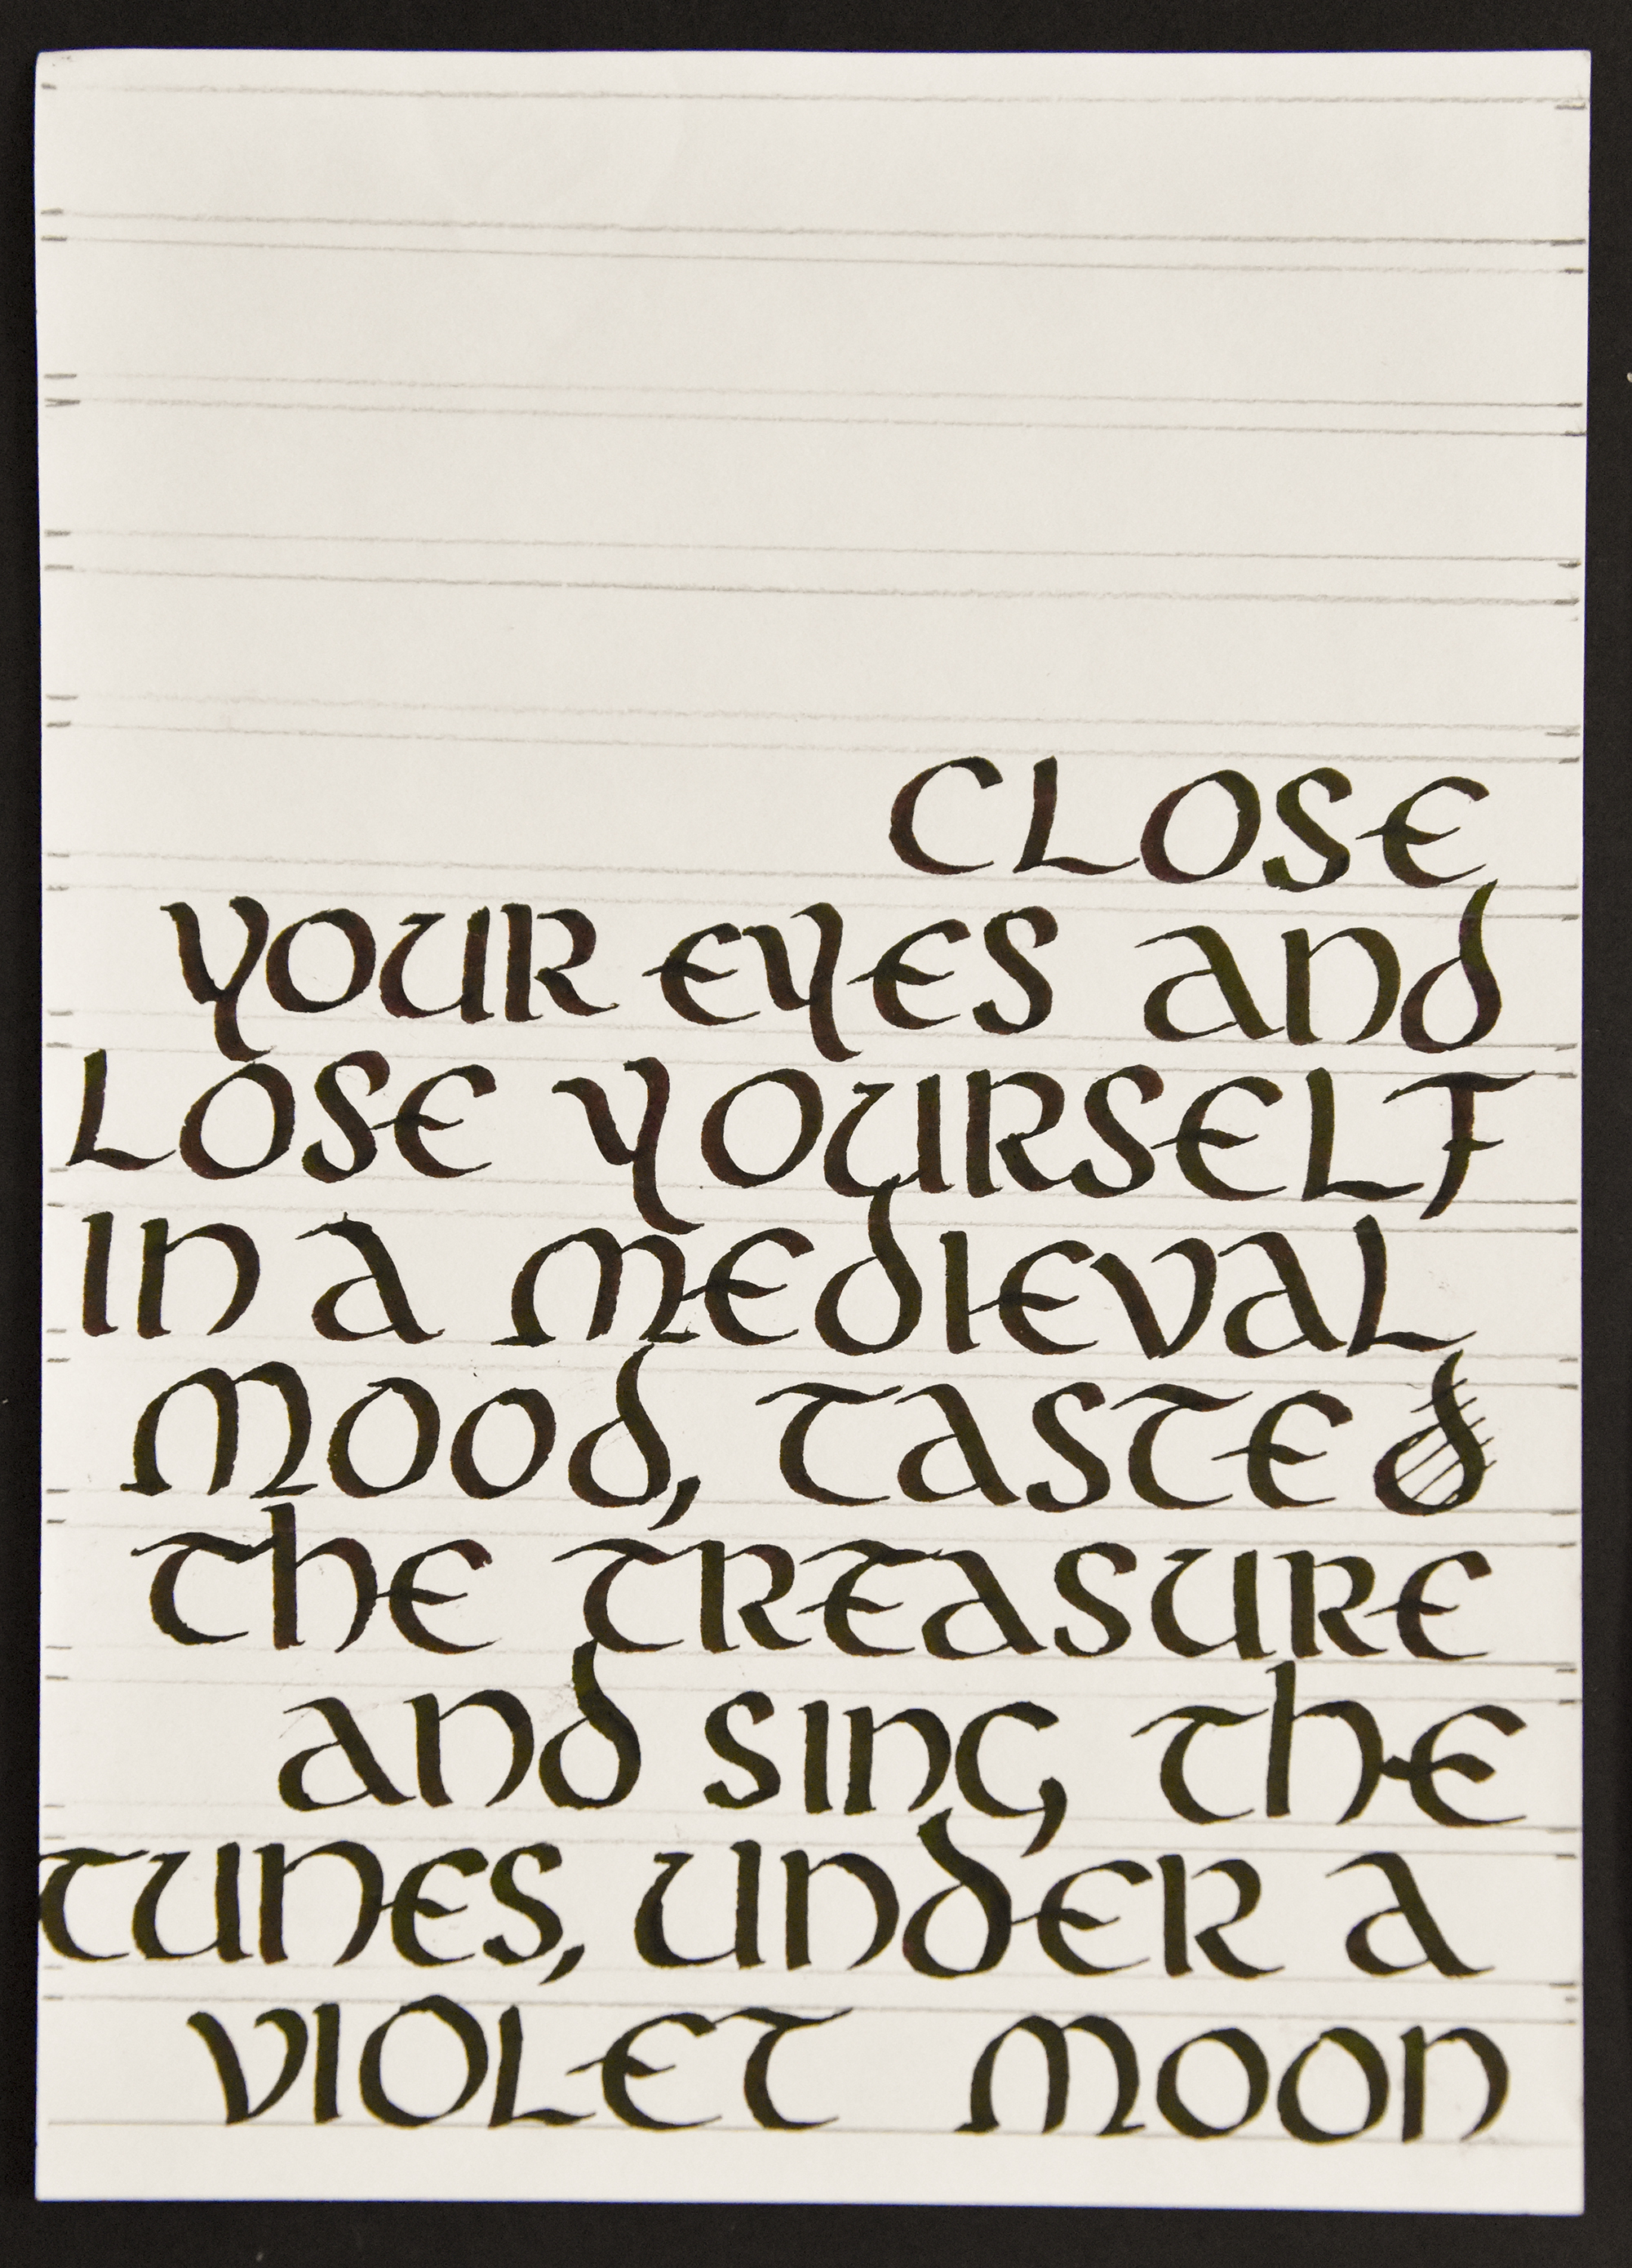 CLOSE
YOUR EYES and
LOSE YOURSELF
IN a MEDIEVAL
MOOD, TASTE
THE TREASURE
and SING THE
TUNES, UNDER a
VIOLET MOON